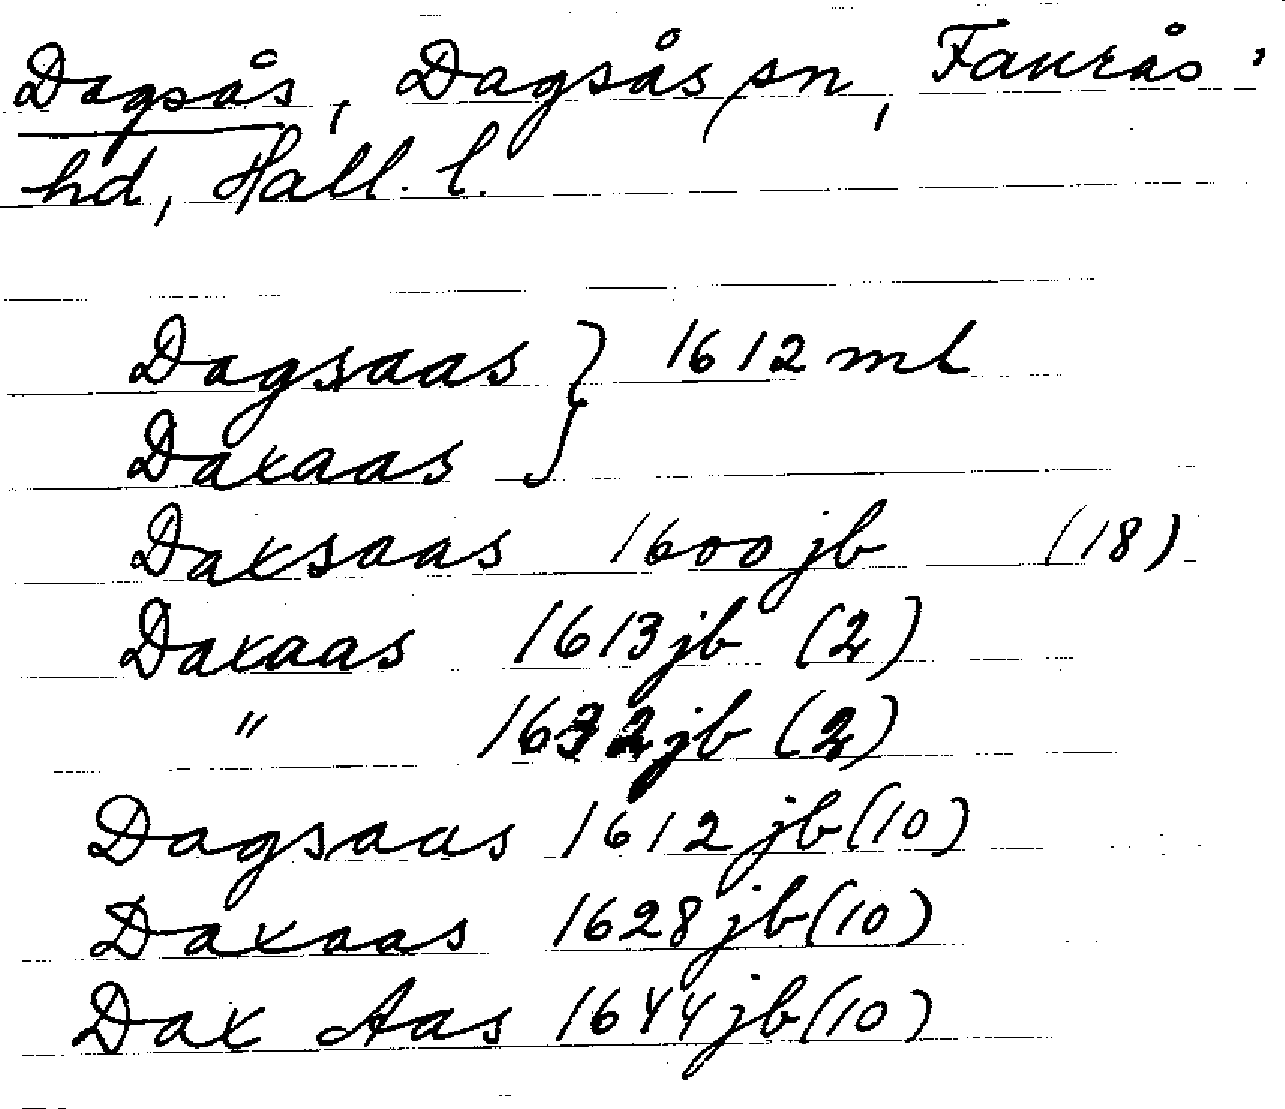 Dagsås, Dagsås sn, Faurås'
hd, Hall. l.
Dagsaas } 1612 ml
Daxaas
Daxsaas 1600 jb (18)
Daxaas 1613 jb (2)
" 1632 jb (2)
Dagsaas 1612 jb (10)
Daxaas 1628 jb (10)
Dax Aas 1644 jb (10)